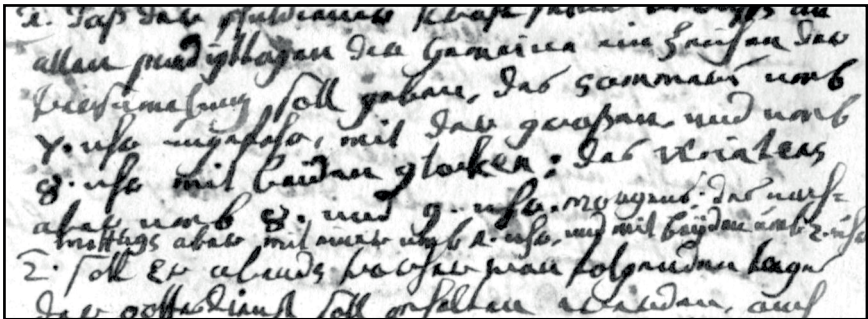 1. Daß der schuldiener krafft seines beruffs an
allen predigttagen der Gemeine ein Zeichen der
Versamelung soll geben, des Sommers umb
7. uhr ungefehr, mit der großen, und umb
8. uhr mit beiden glocken: des Winters
aber umb 8. und 9. uhr. morgens: des nach=
mittags aber mit einer umb 1. uhr, und mit beyden umb 2. uhr
2. soll Er abends bevor man folgenden tages
der gottesdienst soll gehalten werden, auch